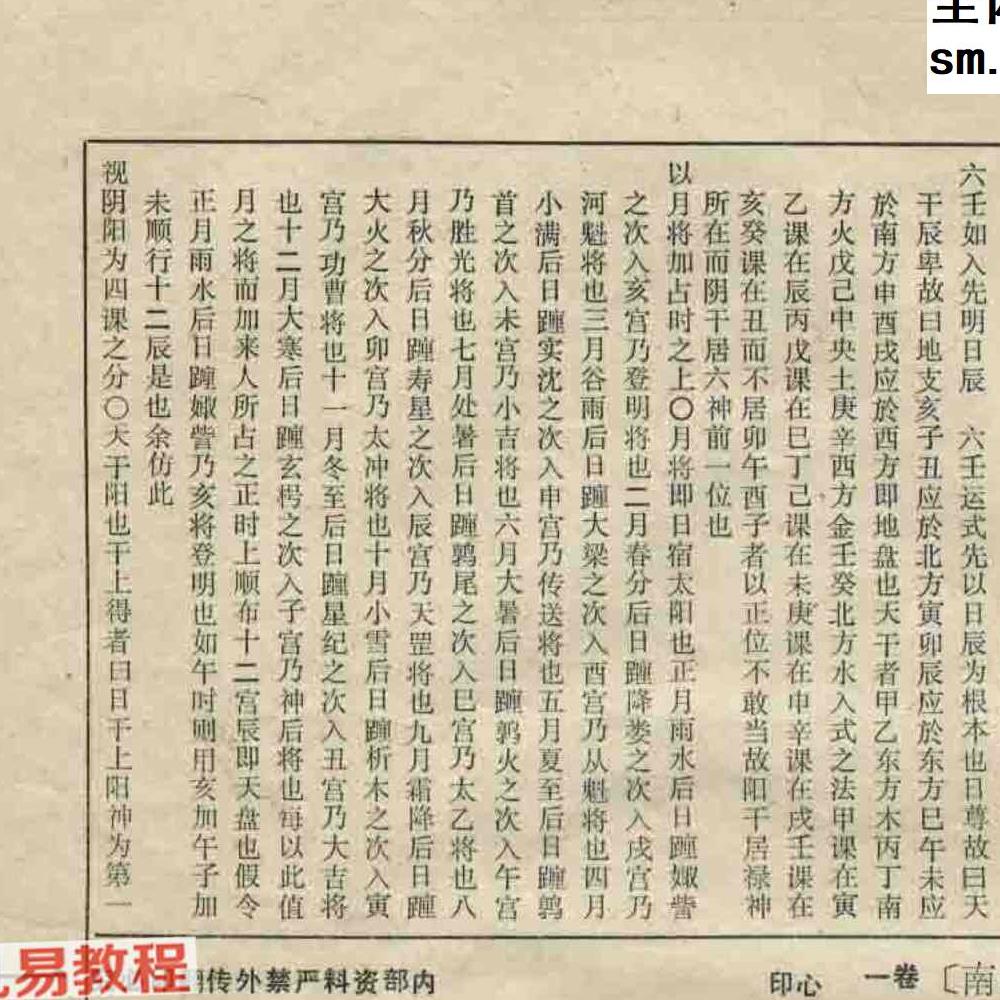 六壬如入先明日辰　六壬运式先以日辰为根本也日尊故曰天
干辰卑故曰地支亥子丑应於北方寅卯辰应於东方巳午未应
於南方申酉戌应於西方即地盘也天干者甲乙东方木丙丁南
方火戊己中央土庚辛西方金壬癸北方水入式之法甲课在寅
乙课在辰丙戊课在巳丁己课在未庚课在申辛课在戌壬课在
亥癸课在丑而不居卯午酉子者以正位不敢当故阳干居禄神
所在而阴干居六神前一位也
以月将加占时之上〇月将即日宿太阳也正月雨水后日躔娵訾
之次入亥宫乃登明将也二月春分后日躔降娄之次入戌宫乃
河魁将也三月谷雨后日躔大梁之次入酉宫乃从魁将也四月
小满后日躔实沈之次入申宫乃传送将也五月夏至后日躔鹑
首之次入未宫乃小吉将也六月大暑后日躔鹑火之次入午宫
乃胜光将也七月处暑后日躔鹑尾之次入巳宫乃太乙将也八
月秋分后日躔寿星之次入辰宫乃天罡将也九月霜降后日躔
大火之次入卯宫乃太冲将也十月小雪后日躔析木之次入寅
宫乃功曹将也十一月冬至后日躔星纪之次入丑宫乃大吉将
也十二月大寒后日躔玄枵之次入子宫乃神后将也每以此值
月之将而加来人所占之正时上顺布十二宫辰即天盘也假令
正月雨水后日躔娵訾乃亥将登明也如午时则用亥加午子加
未顺行十二辰是也余仿此
视阴阳为四课之分〇天干阳也干上得者曰日干上阳神为第一
〔南
卷一
心印
内部资料严禁外传
易教程
sm.